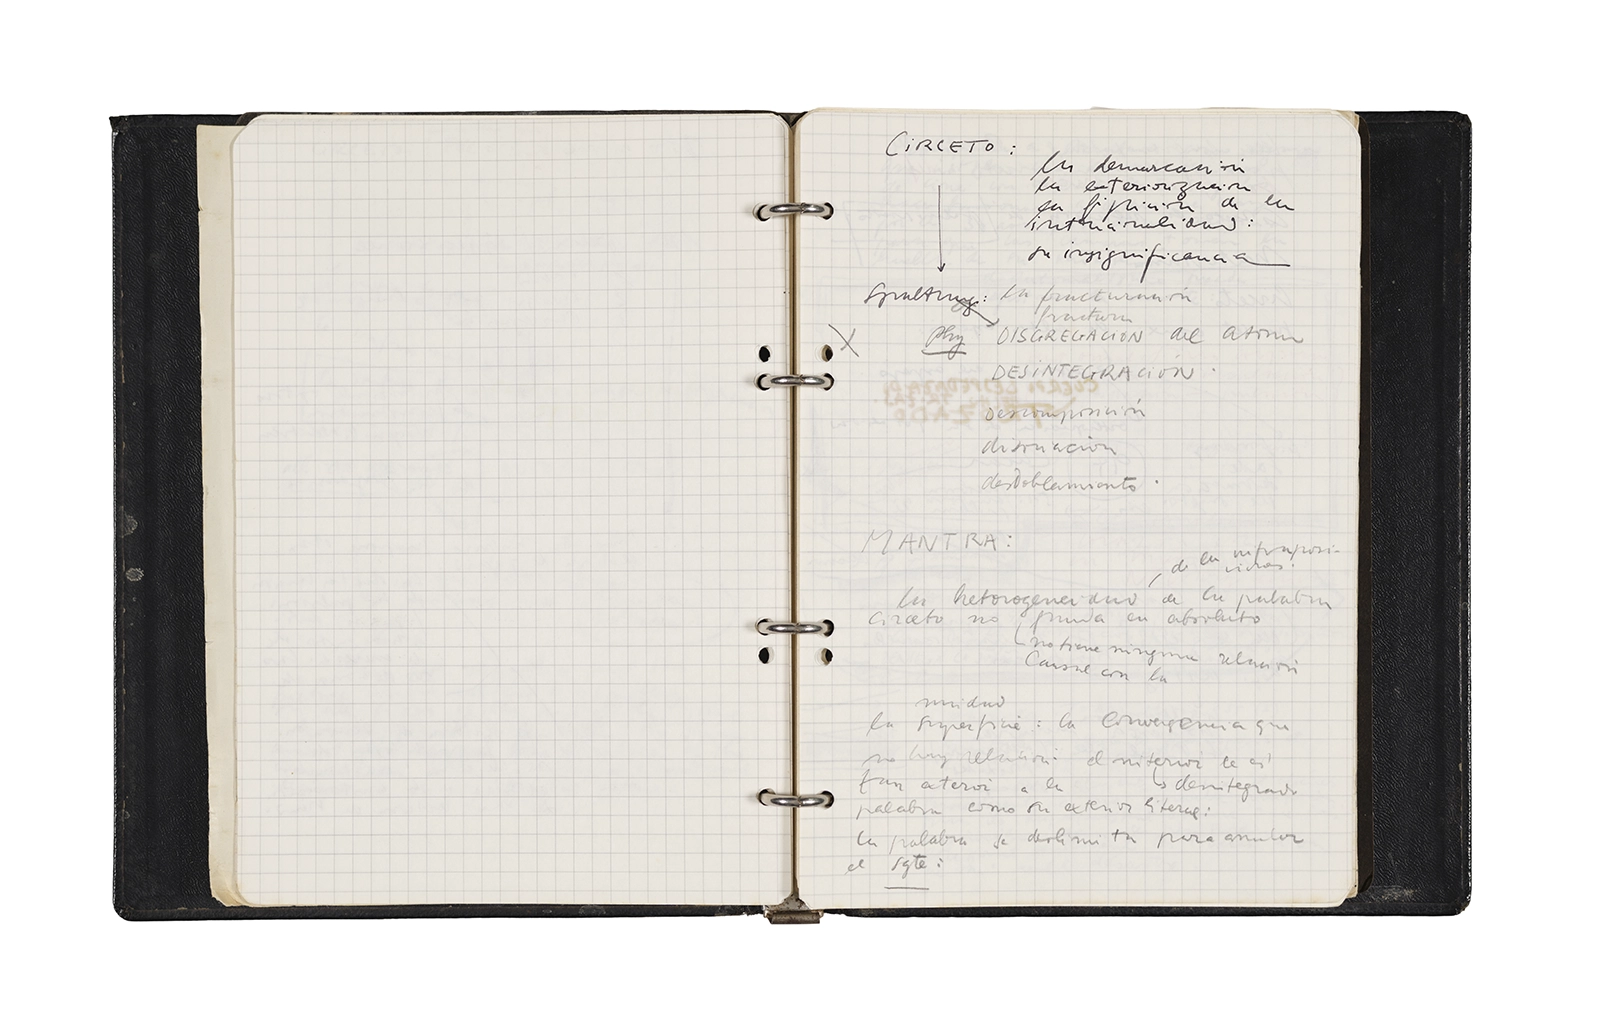 CIRCETO :
la demarcación
la exteriorización
la fijación de la
intencionalidad :
su insignificancia
Spaltung : la fracturación
fractura
X phy DISGREGACION del atomo
DESINTEGRACIÓN .
descomposición
disociación
desdoblamiento .
MANTRA :
de la
la heterogeneidad de la palabra
circeto no funda en absoluto
no tiene ninguna relación
causal con la
unidad
la superficie : la convergencia que
no hay relación. el interior le es
tan exterior a la desintegrada
palabra como su exterior literal :
la palabra se deslimita para anular
el sgte :